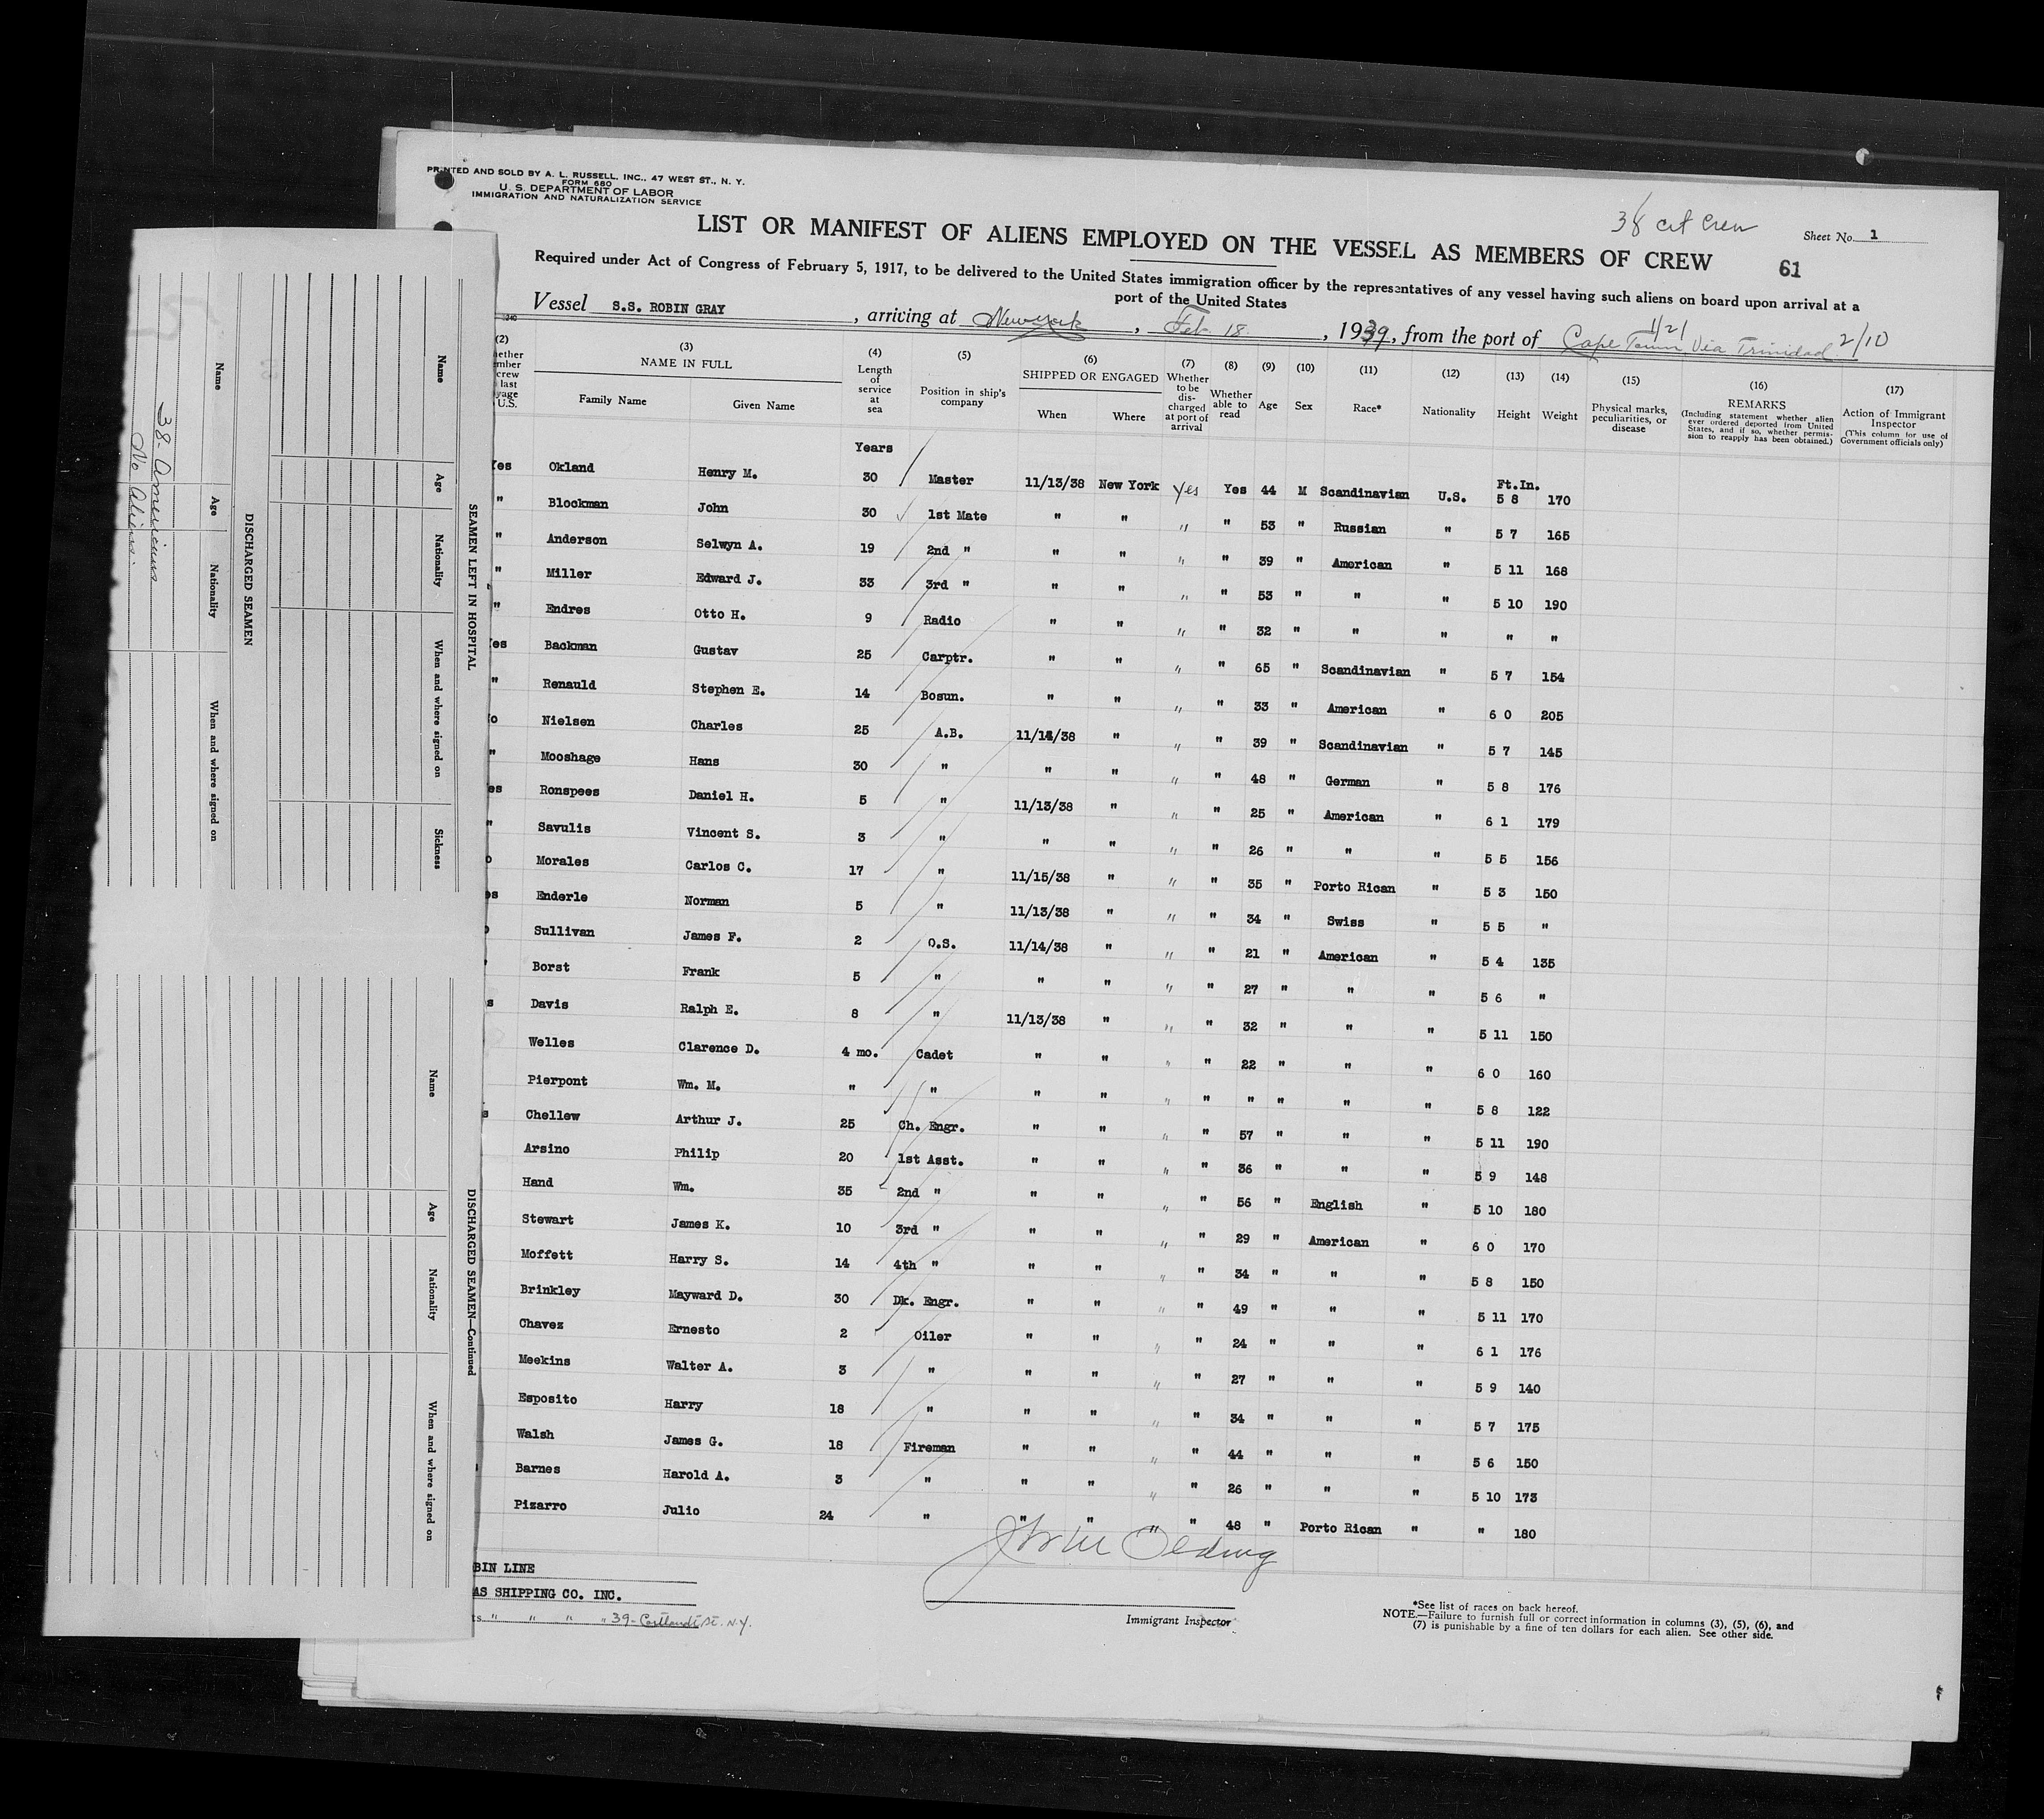 PRINTED AND SOLD BY A. L. RUSSELL, INC., 47 WEST ST., N. Y.
FORM 680
U. S. DEPARTMENT OF LABOR
IMMIGRATION AND NATURALIZATION SERVICE
38 cit crew
Sheet No. 1
LIST OR MANIFEST OF ALIENS EMPLOYED ON THE VESSEL AS MEMBERS OF CREW
61
Required under Act of Congress of February 5, 1917, to be delivered to the United States immigration officer by the representatives of any vessel having such aliens on board upon arrival at a
port of the United States
Vessel S.S. ROBIN GRAY, arriving at New York, Feb 18, 1939, from the port of Cape Town 1/21 Via Trinidad 2/10
(2) (3) (4) (5) (6) (7) (8) (9) (10) (11) (12) (13) (14) (15) (16) (17)
NAME IN FULL
Family Name Given Name
Length of service at sea
Position in ship's company
SHIPPED OR ENGAGED
When Where
Whether to be discharged at port of arrival
Whether able to read
Age Sex Race* Nationality Height Weight
Physical marks, peculiarities, or disease
REMARKS
(Including statement whether alien ever ordered deported from United States, and if so, whether permission to reapply has been obtained.)
Action of Immigrant Inspector
(This column for use of Government officials only)
Years Ft.In.
Yes Okland Henry M. 30 Master 11/13/38 New York Yes Yes 44 M Scandinavian U.S. 5 8 170
" Blockman John 30 1st Mate " " " " 53 " Russian " 5 7 165
" Anderson Selwyn A. 19 2nd " " " " " 39 " American " 5 11 168
" Miller Edward J. 33 3rd " " " " " 53 " " " 5 10 190
" Endres Otto H. 9 Radio " " " " 32 " " " " "
es Backman Gustav 25 Carptr. " " " " 65 " Scandinavian " 5 7 154
" Renauld Stephen E. 14 Bosun. " " " " 33 " American " 6 0 205
o Nielsen Charles 25 A.B. 11/14/38 " " " 39 " Scandinavian " 5 7 145
" Mooshage Hans 30 " " " " " 48 " German " 5 8 176
es Ronspees Daniel H. 5 " 11/13/38 " " " 25 " American " 6 1 179
" Savulis Vincent S. 3 " " " " " 26 " " " 5 5 156
o Morales Carlos C. 17 " 11/15/38 " " " 35 " Porto Rican " 5 3 150
es Enderle Norman 5 " 11/13/38 " " " 34 " Swiss " 5 5 "
o Sullivan James F. 2 O.S. 11/14/38 " " " 21 " American " 5 4 135
" Borst Frank 5 " " " " " 27 " " " 5 6 "
s Davis Ralph E. 8 " 11/13/38 " " " 32 " " " 5 11 150
Welles Clarence D. 4 mo. Cadet " " " " 22 " " " 6 0 160
Pierpont Wm. M. " " " " " " " " " " 5 8 122
s Chellew Arthur J. 25 Ch. Engr. " " " " 57 " " " 5 11 190
Arsino Philip 20 1st Asst. " " " " 36 " " " 5 9 148
Hand Wm. 35 2nd " " " " " 56 " English " 5 10 180
Stewart James K. 10 3rd " " " " " 29 " American " 6 0 170
Moffett Harry S. 14 4th " " " " " 34 " " " 5 8 150
Brinkley Mayward D. 30 Dk. Engr. " " " " 49 " " " 5 11 170
Chavez Ernesto 2 Oiler " " " " 24 " " " 6 1 176
Meekins Walter A. 3 " " " " " 27 " " " 5 9 140
Esposito Harry 18 " " " " " 34 " " " 5 7 175
Walsh James G. 18 Fireman " " " " 44 " " " 5 6 150
Barnes Harold A. 3 " " " " " 26 " " " 5 10 173
Pizarro Julio 24 " " " " 48 " Porto Rican " " 180
BIN LINE
AS SHIPPING CO. INC.
ts " " " " 39-Cortlandt St. N.Y.
Immigrant Inspector
*See list of races on back hereof.
NOTE.—Failure to furnish full or correct information in columns (3), (5), (6), and
(7) is punishable by a fine of ten dollars for each alien. See other side.
SEAMEN LEFT IN HOSPITAL
Name Age Nationality When and where signed on Sickness
DISCHARGED SEAMEN
Name Age Nationality When and where signed on
38-Americans
No Aliens.
DISCHARGED SEAMEN—Continued
Name Age Nationality When and where signed on